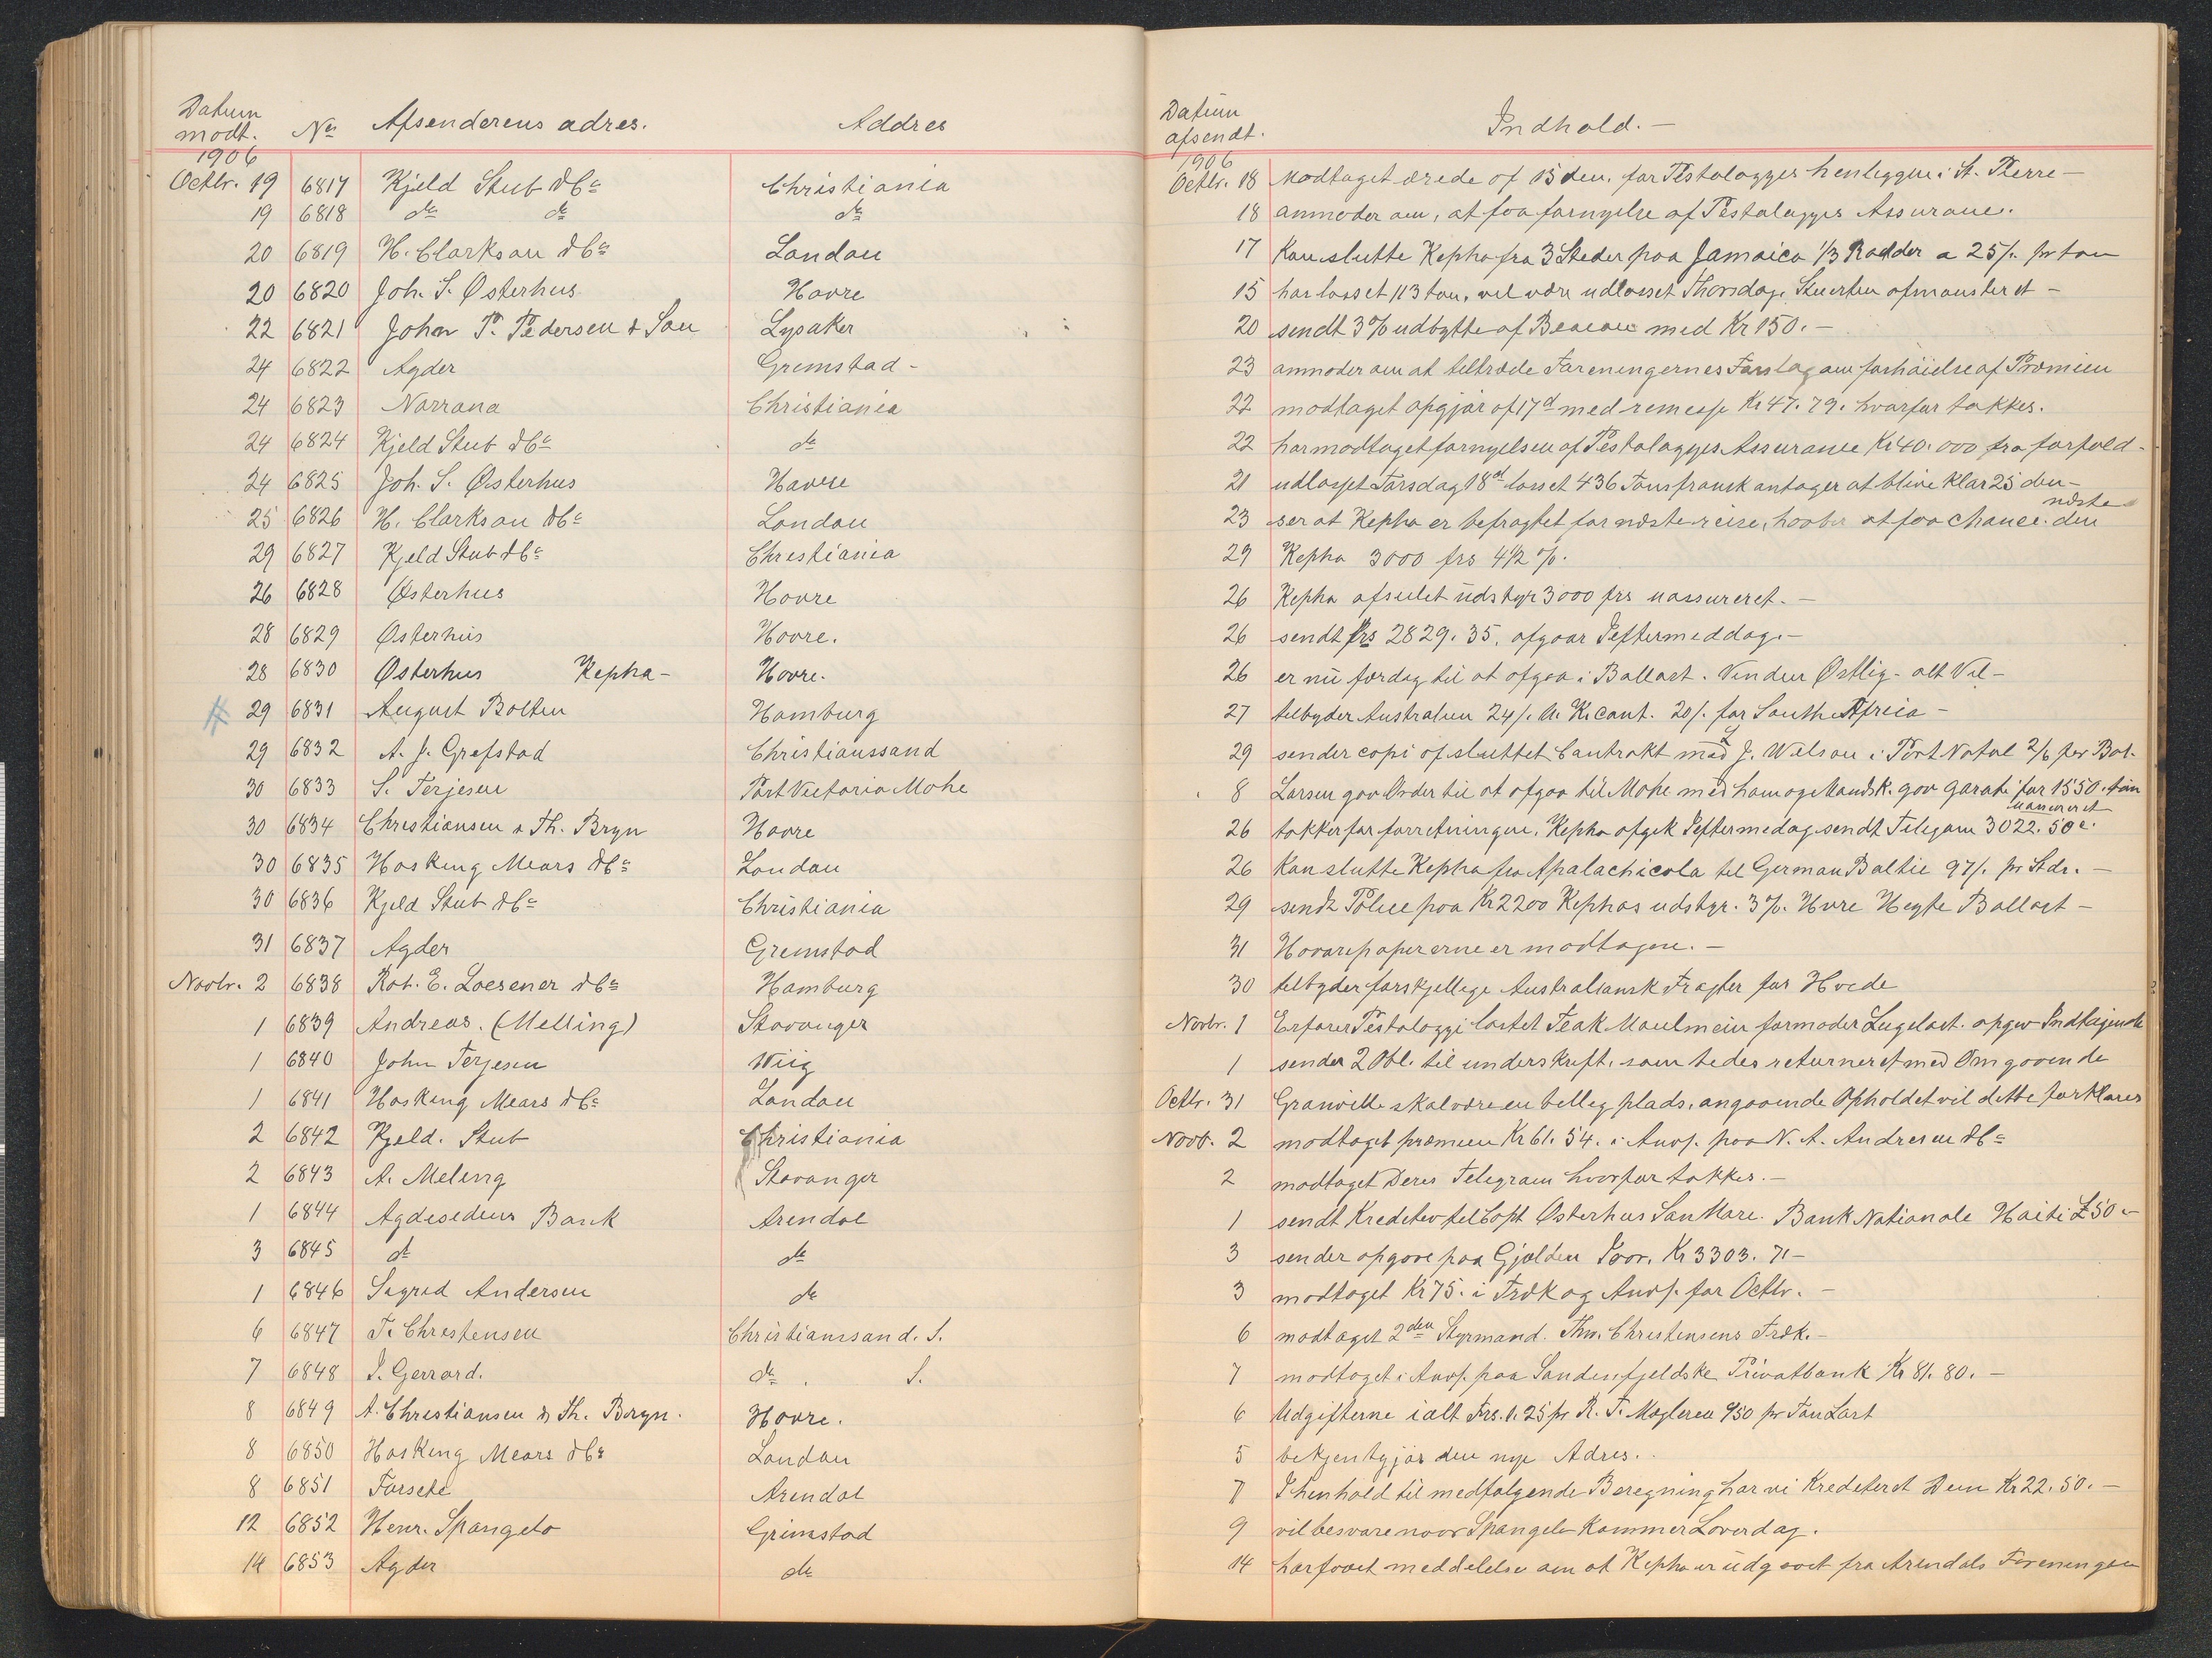 Datum modt. No Afsenderens adres. Addres
Datum afsendt. Indhold.—
1906
1906
Octbr. 19 6817 Kjeld Stub & Co Christiania
19 6818 do do do
20 6819 H. Clarkson & Co London
20 6820 Joh. S. Østerhus Havre
22 6821 John P. Pedersen & Son Lysaker
24 6822 Agder Grimstad-
24 6823 Norrøna Christiania
24 6824 Kjeld Stub & Co do
24 6825 Joh. S. Østerhus Havre
25 6826 H. Clarkson & Co London
29 6827 Kjeld Stub & Co Christiania
26 6828 Østerhus Havre
28 6829 Østerhus Havre.
28 6830 Østerhus Kepha- Havre.
29 6831 August Bolten Hamburg
29 6832 A. J. Grefstad Christianssand
30 6833 S. Terjesen Port Victoria Mahe
30 6834 Christiansen & Th. Bryn Havre
30 6835 Hosking Mears & Co London
30 6836 Kjeld Stub & Co Christiania
31 6837 Agder Grimstad
Novbr. 2 6838 Rob. E. Loesener & Co Hamburg
1 6839 Andreas. (Melling) Stavanger
1 6840 John Terjesen Wiig
1 6841 Hosking Mears & Co London
2 6842 Kjeld. Stub Christiania
2 6843 A. Meling Stavanger
1 6844 Agdesidens Bank Arendal
3 6845 do do
1 6846 Sigrid Andersen do
6 6847 T. Christensen Christianssand. S.
7 6848 S. Gerrard. do . S.
8 6849 A. Christiansen & Th. Bryn. Havre.
8 6850 Hosking Mears & Co London
8 6851 Forsete Arendal
12 6852 Henr. Spangelo Grimstad
14 6853 Agder do
Octbr. 18 Modtaget ærede af 15 den. for Pestalozzis henliggen i St. Pierre—
18 anmoder om, at faa fornyelse af Pestalozzis Assurance.
17 Kan slutte Kepha fra 3 Steder paa Jamaica 1/3 Rødder a 25/. pr ton
15 har losset 113 ton, vil være udlosset Thorsdag, Stuerten afmønsteret—
20 sendt 3% udbytte af Beacon med Kr 150.—
23 anmoder om at tiltræde Foreningernes Forslag om forhöielse af Præmien
22 modtaget opgjør af 17d med remesse Kr 47.79. hvorfor takkes.
22 har modtaget fornyelsen af Pestalozzis Assurance Kr 40.000 fra forfald-
21 udlosset Torsdag 18d losset 436 Tons fransk antager at blive klar 25 den—
næste
23 ser at Kepha er befragtet for næste reise, haaber at faa chance den
29 Kepha 3000 frs 4 1/2 %.
26 Kepha afseilet udstyr 3000 frs uassureret.—
26 sendt frs 2829.35. afgaar Ieftermiddag.—
26 er nu færdig til at afgaa i Ballast. Vinden Østlig- alt Vel—
27 tilbyder Australien 24/. U. K. cont. 20/. for South Africa—
29 sender copi af sluttet Contrakt med J. Wilson i Port Natal 2/6 per Bal.
8 Larsen gav Order til at afgaa til Mahe med ham og Mandsk. gav garati for 1550. ton
26 takker for forretningen, Kepha afgik Ieftermedag sendt Telegram 3022.50 c.
26 Kan slutte Kepha fra Apalachicola til German Baltic 97/. pr Stdr.—
29 sendt Police paa Kr 2200 Kephas udstyr. 3%. Havre Hayte Ballast—
31 Havaripapirerne er modtagne.—
30 tilbyder forskjellige Australiansk Fragter for Hvede
Novbr. 1 Erfarer Pestalozzi lastet Teak Maulmein formoder Lugelast. opgiv Indtagende
1 sender 2 Obl. til underskrift. som bedes returneret med Omgaaende
Octbr. 31 Granville skal være en billig plads, angaaende Opholdet vil dette forklares
Novb. 2 modtaget præmien Kr 61.54. i Anvs. paa N. A. Andresen & Co
2 modtaget Deres Telegram hvorfor takkes.—
1 sendt Kreditev til Capt Østerhus San Marc. Bank Nationale Haiti £50.-
3 sender opgave paa Gjælden Kr 3303.71-
3 modtaget Kr 75. i Trækog Anvs. for Octbr.—
6 modtaget 2den Styrmand. Thv. Christensens Træk.—
7 modtaget i Anvs. paa Søndenfjeldske Privatbank Kr 81.80.—
6 Udgifterne ialt Frs. 1.25 pr R. T. Mægleren 950 pr Ton Last
5 bekjentgjør den nye Adres.
7 I henhold til medfølgende Beregning har vi Krediteret Dem Kr 22.50.—
9 vil besvare naar Spangelo Kommer Lørerdag.
14 har faaet meddelelse om at Kepha er udgaaet fra Arendals Foreningen